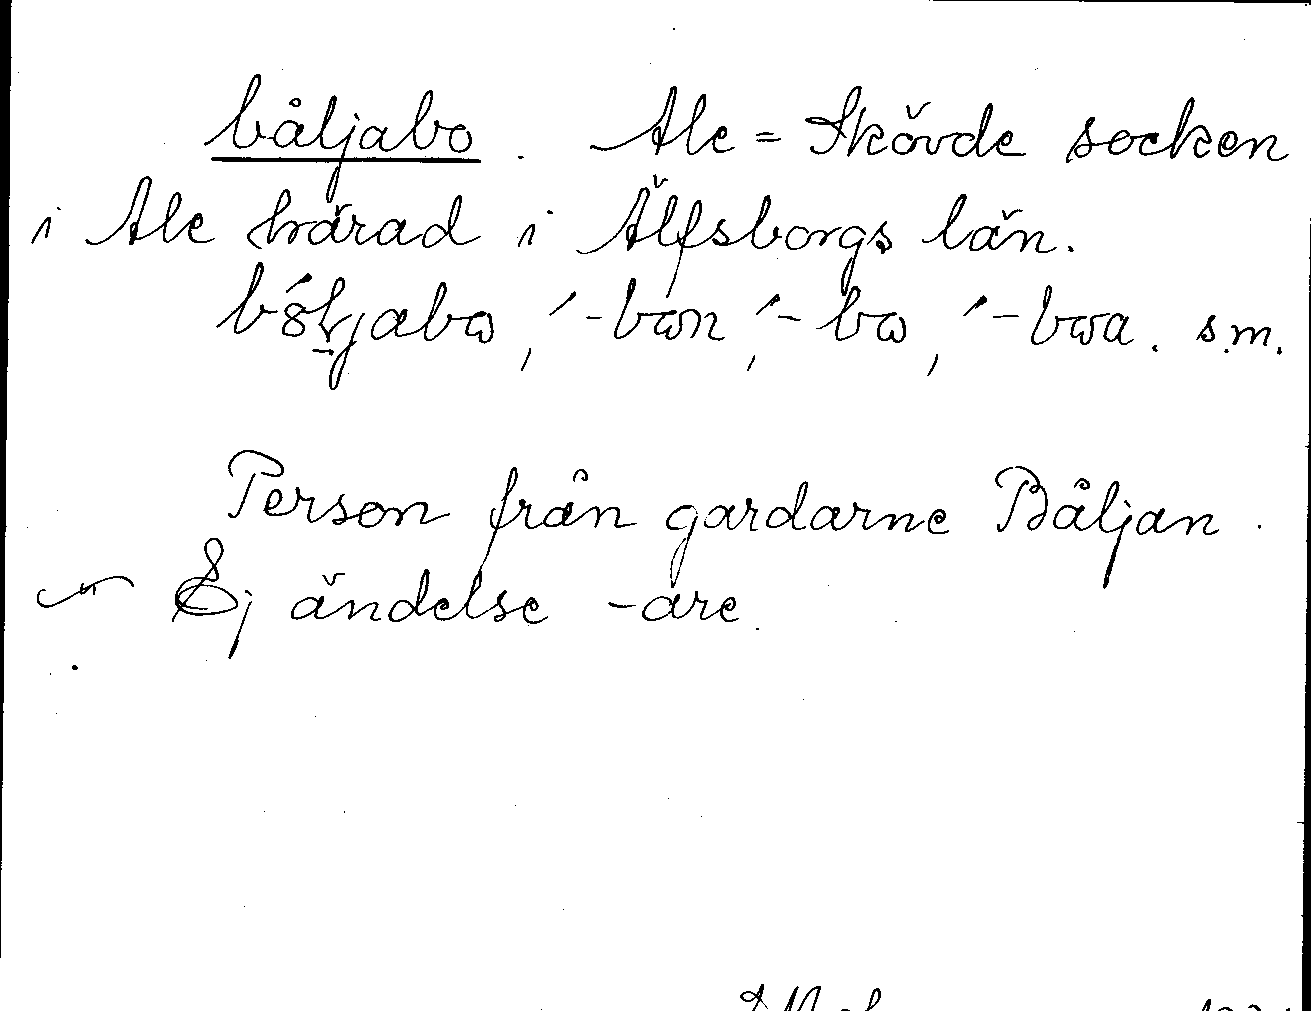 båljabo. Ale = Skövde socken
i Ale härad i Älfsborgs län.
-bɷn, ´-bɷ, ´-bɷa. s.m.
Person från gardarne Båljan.
Ej ändelse -are.